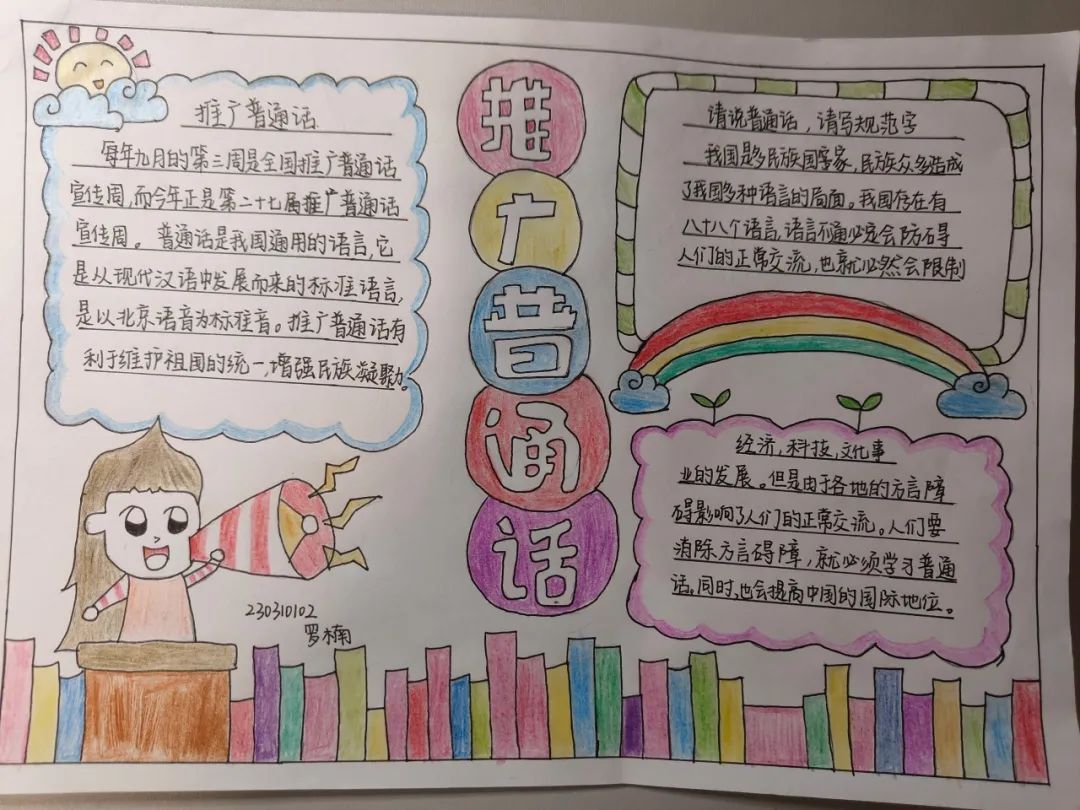 推广普通话
每年九月的第三周是全国推广普通话
宣传周,而今年正是第二十七届推广普通话
宣传周。普通话是我国通用的语言,它
是以现代汉语中发展而来的标准语言,
是以北京语音为标准音。推广普通话有
利于维护祖国的统一,增强民族凝聚力。
230310102
罗楠
推广普通话
请说普通话,请写规范字
我国是多民族国家,民族众多造成
了我国多种语言的局面。我国存在有
八十八个语言,语言不通必定会防碍
人们的正常交流,也就必然会限制
经济,科技,文化事
业的发展。但是由于各地的方言障
碍影响了人们的正常交流。人们要
消除方言碍障,就必须学习普通
话。同时,也会提高中国的国际地位。